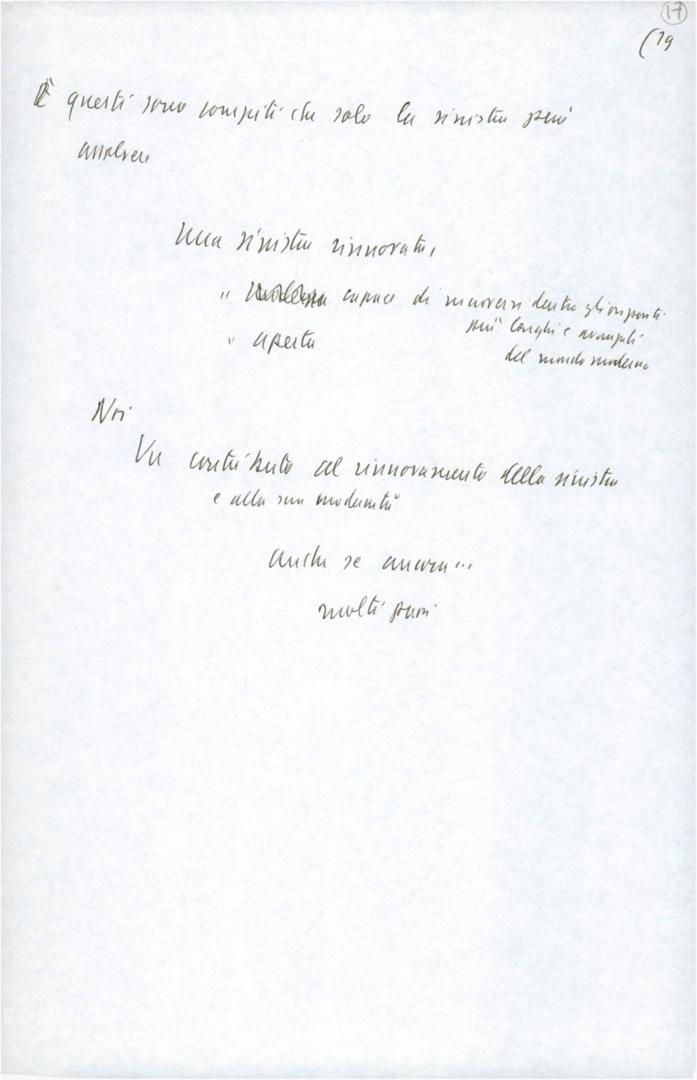 17
(19
E questi sono compiti che solo la sinistra può
assolvere
Una sinistra rinnovata,
" capace di muoversi dentro gli orizzonti
più larghi e avanzati
del mondo moderno
" aperta
Noi
Un contributo al rinnovamento della sinistra
e alla sua modernità
anche se ancora...
molti passi